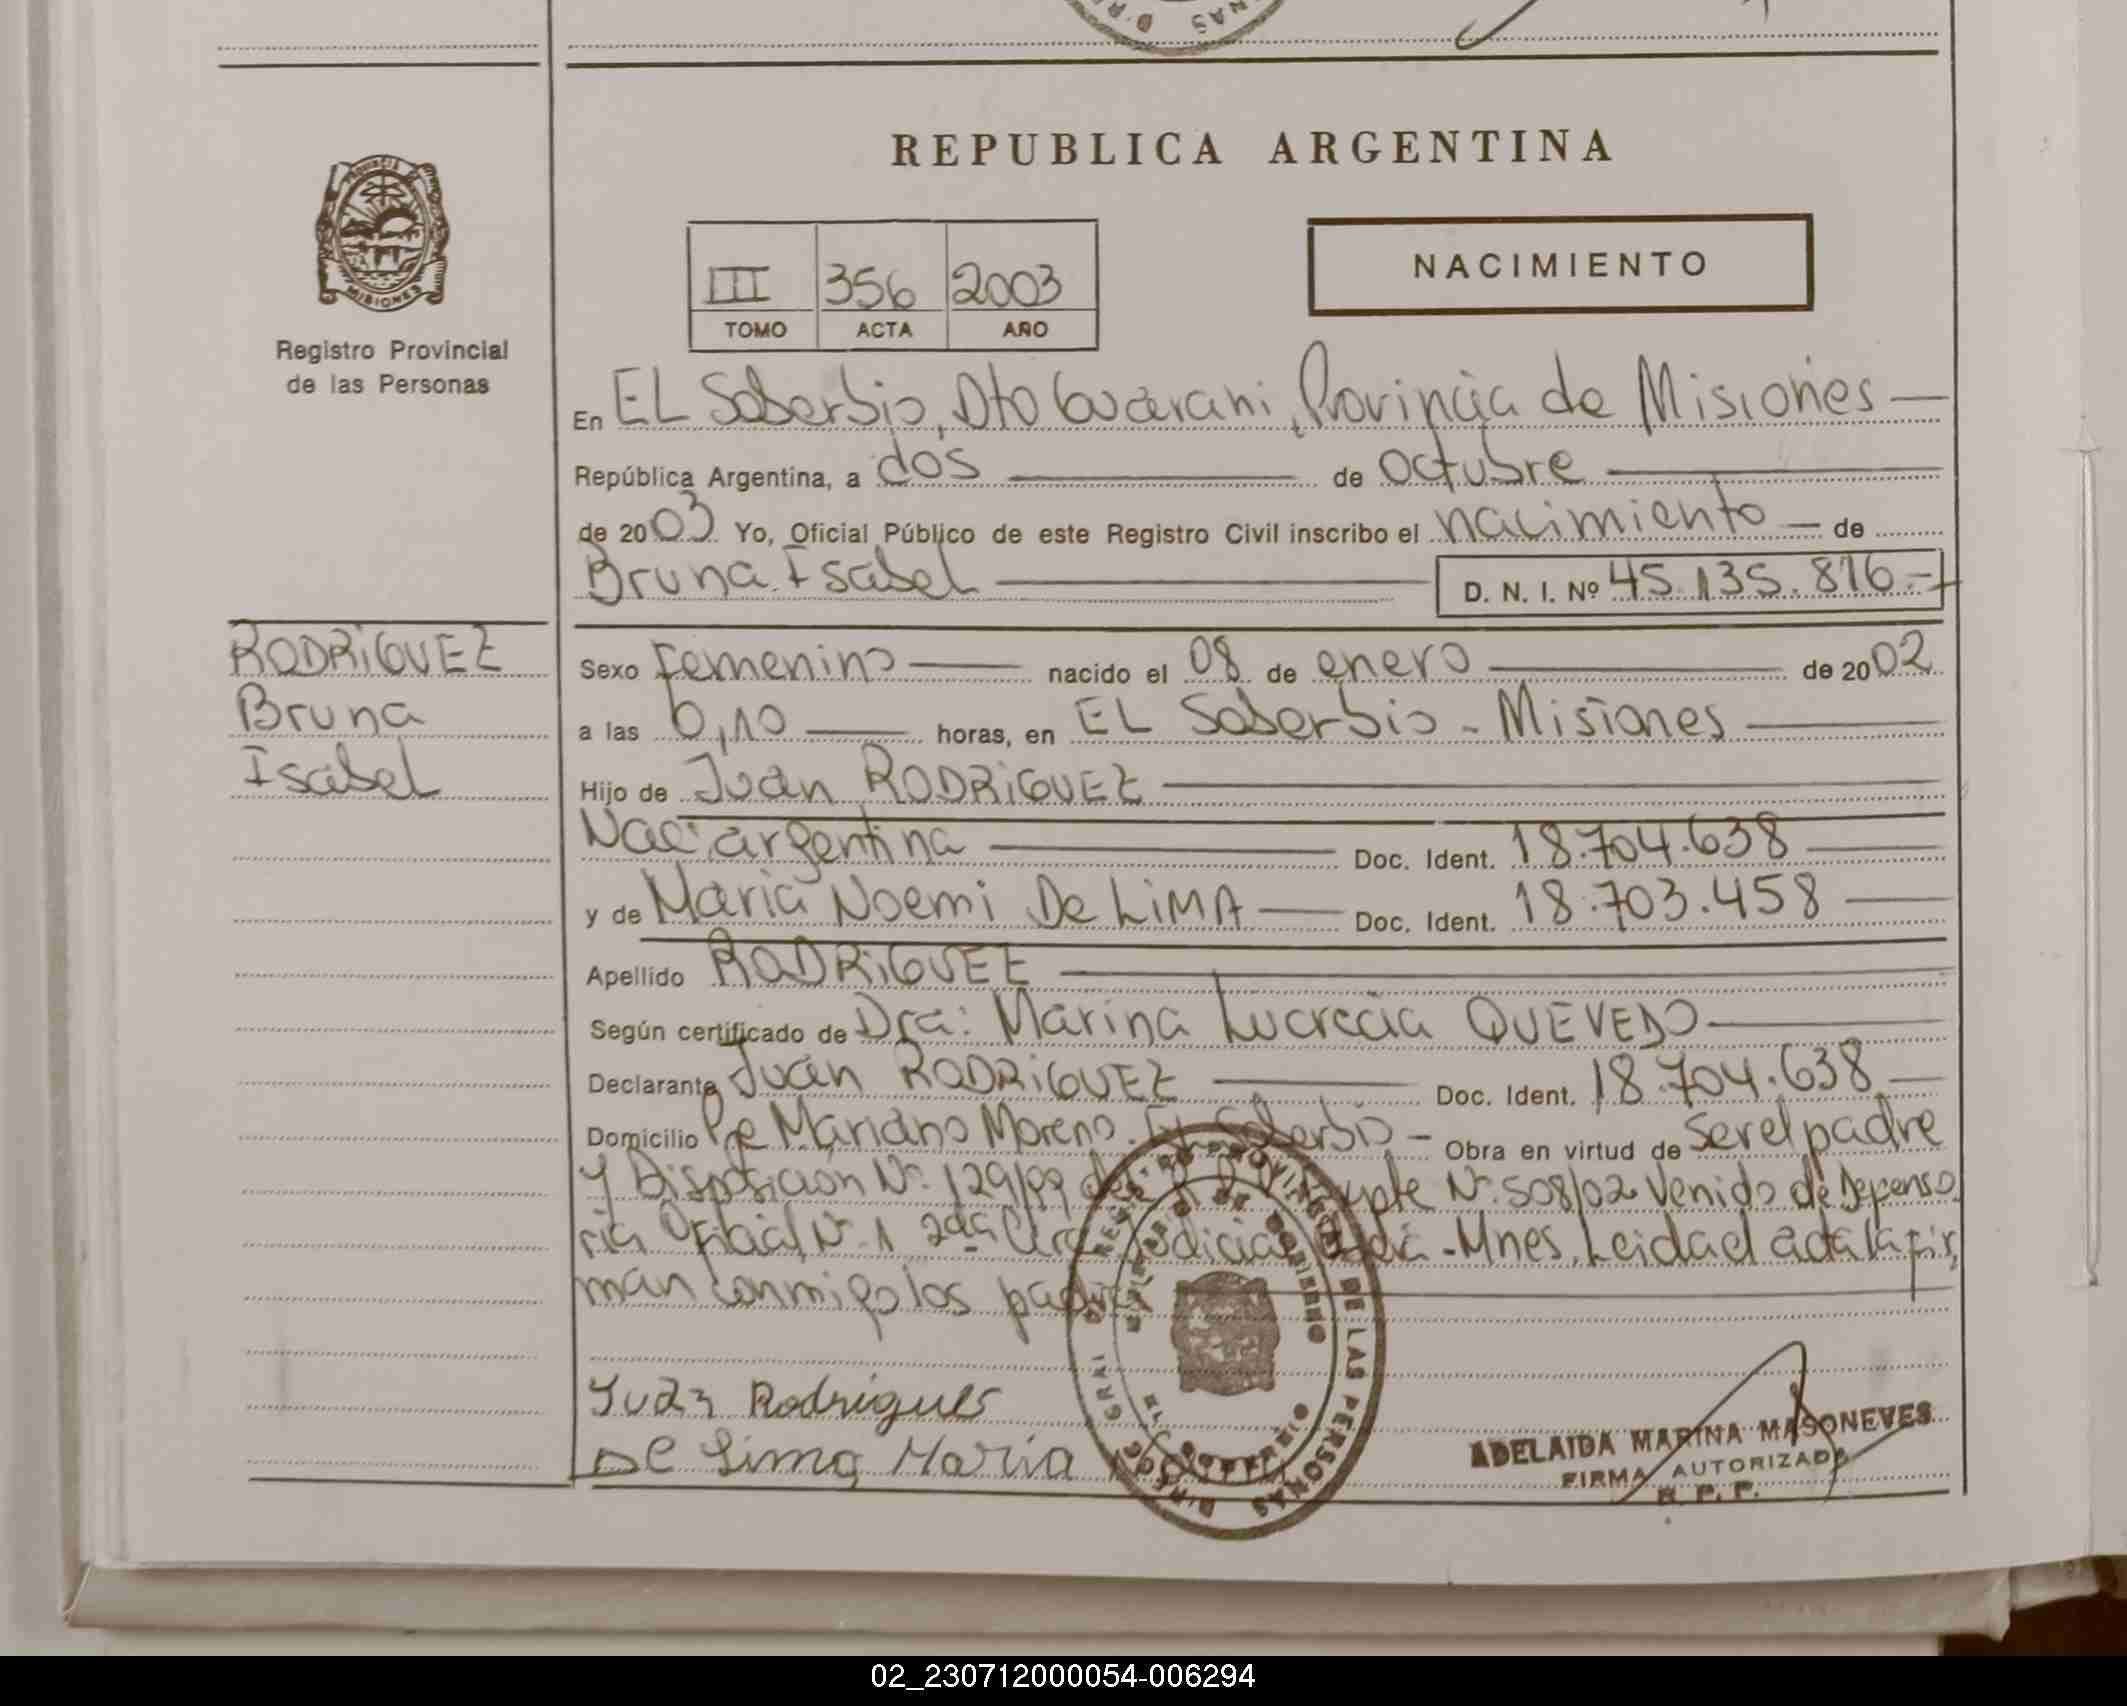 REPUBLICA ARGENTINA
PROVINCIA DE
MISIONES
Registro Provincial
de las Personas
III 356 2003
TOMO ACTA AÑO
NACIMIENTO
En EL Soberbio, Dto Guarani, Provincia de Misiones
República Argentina, a dos de octubre
de 2003 Yo, Oficial Público de este Registro Civil inscribo el nacimiento de
Bruna Isabel D. N. I. Nº 45.135.816.-
RODRIGUEZ
Bruna
Isabel
Sexo Femenino nacido el 08 de enero de 2002
a las 0,10 horas, en EL Soberbio - Misiones
Hijo de Juan RODRIGUEZ
Nac. argentina Doc. Ident. 18.704.638
y de Maria Noemi De LiMA Doc. Ident. 18.703.458
Apellido RODRIGUEZ
Según certificado de Dra: Marina Lucrecia QUEVEDO
Declarante Juan RODRIGUEZ Doc. Ident. 18.704.638
Domicilio Pje Mariano Moreno. El Soberbio - Obra en virtud de ser el padre
y Disposición Nº 129/99 del Nº 508/02 Venido de Defenso
ria Oficial Nº 1 2da Judicial Mnes. Leida el acta la fir
man conmigo los padres
Juan Rodrigues
De Lima Maria
DE LAS PERSONAS
ADELAIDA MARINA MASONEVES
FIRMA AUTORIZADA
R. P. P.
02_230712000054-006294